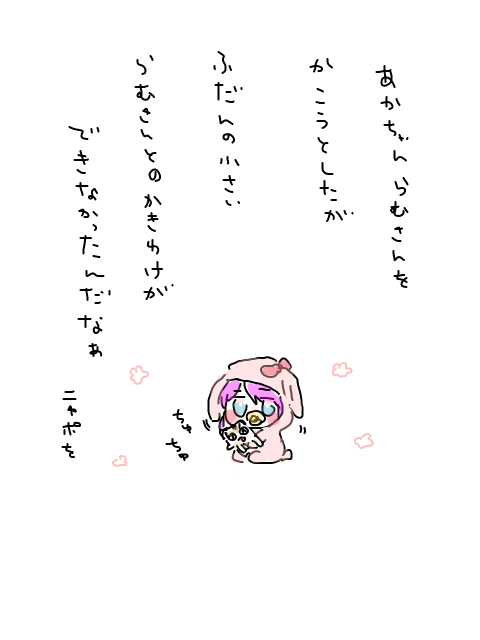 あかちゃんらむさんを
かこうとしたが
ふだんの小さい
らむさんとのかきわけが
できなかったんだなぁ
ニャポを
ちゅ
ちゅ